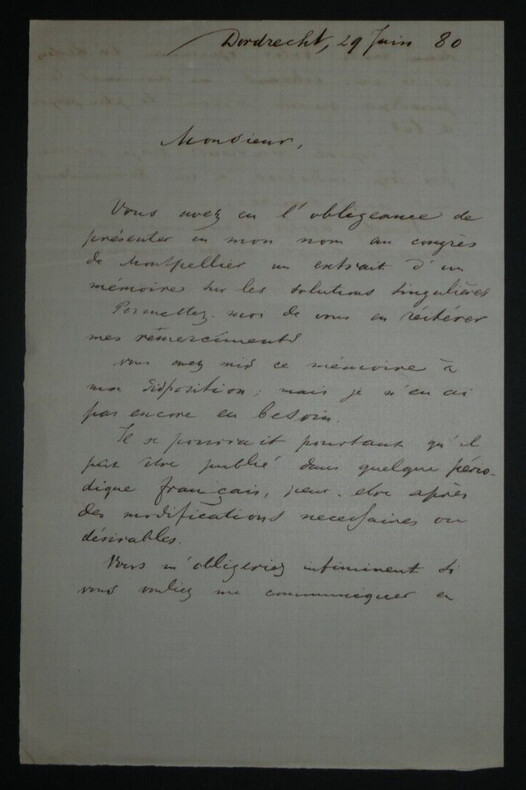 Dordrecht, 29 Juin 80
Monsieur,
Vous avez eu l'obligeance de
présenter en mon nom au congrès
de Montpellier un extrait d'un
mémoire sur les solutions singulières
Permettez-moi de vous en réitérer
mes remercîments
Vous avez mis ce mémoire à
ma disposition; mais je n'en ai
pas encore eu besoin.
Il se pourrait pourtant qu'il
pût être publié dans quelque pério-
dique français, peut-être après
des modifications necessaires ou
désirables.
Vous m'obligeriez infiniment si
vous vouliez me communiquer en